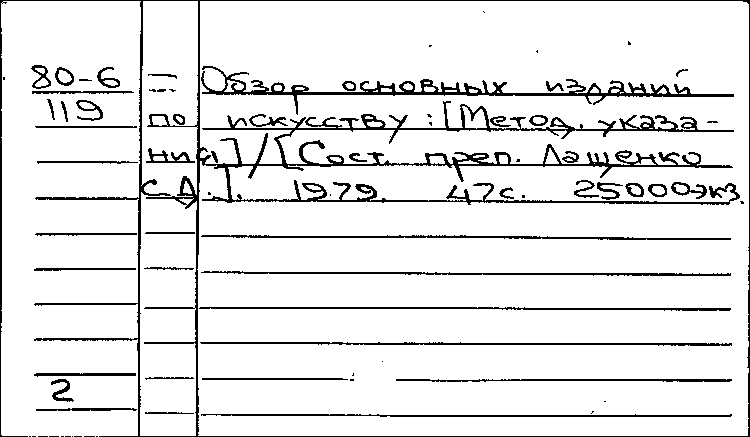 80-6 = Обзор основных изданий
119 по искусству : [Метод. указа-
ния] / [Сост. преп. Лащенко
С.Д.]. 1979. 47с. 25000экз.
2